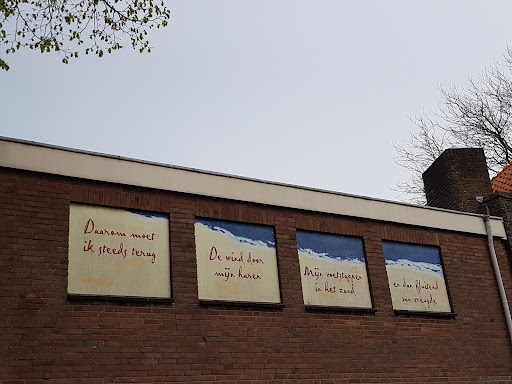 Daarom moet
ik steeds terug
De wind door
mijn haren
Mijn voetstappen
in het zand
en dan fluitend
van vreugde